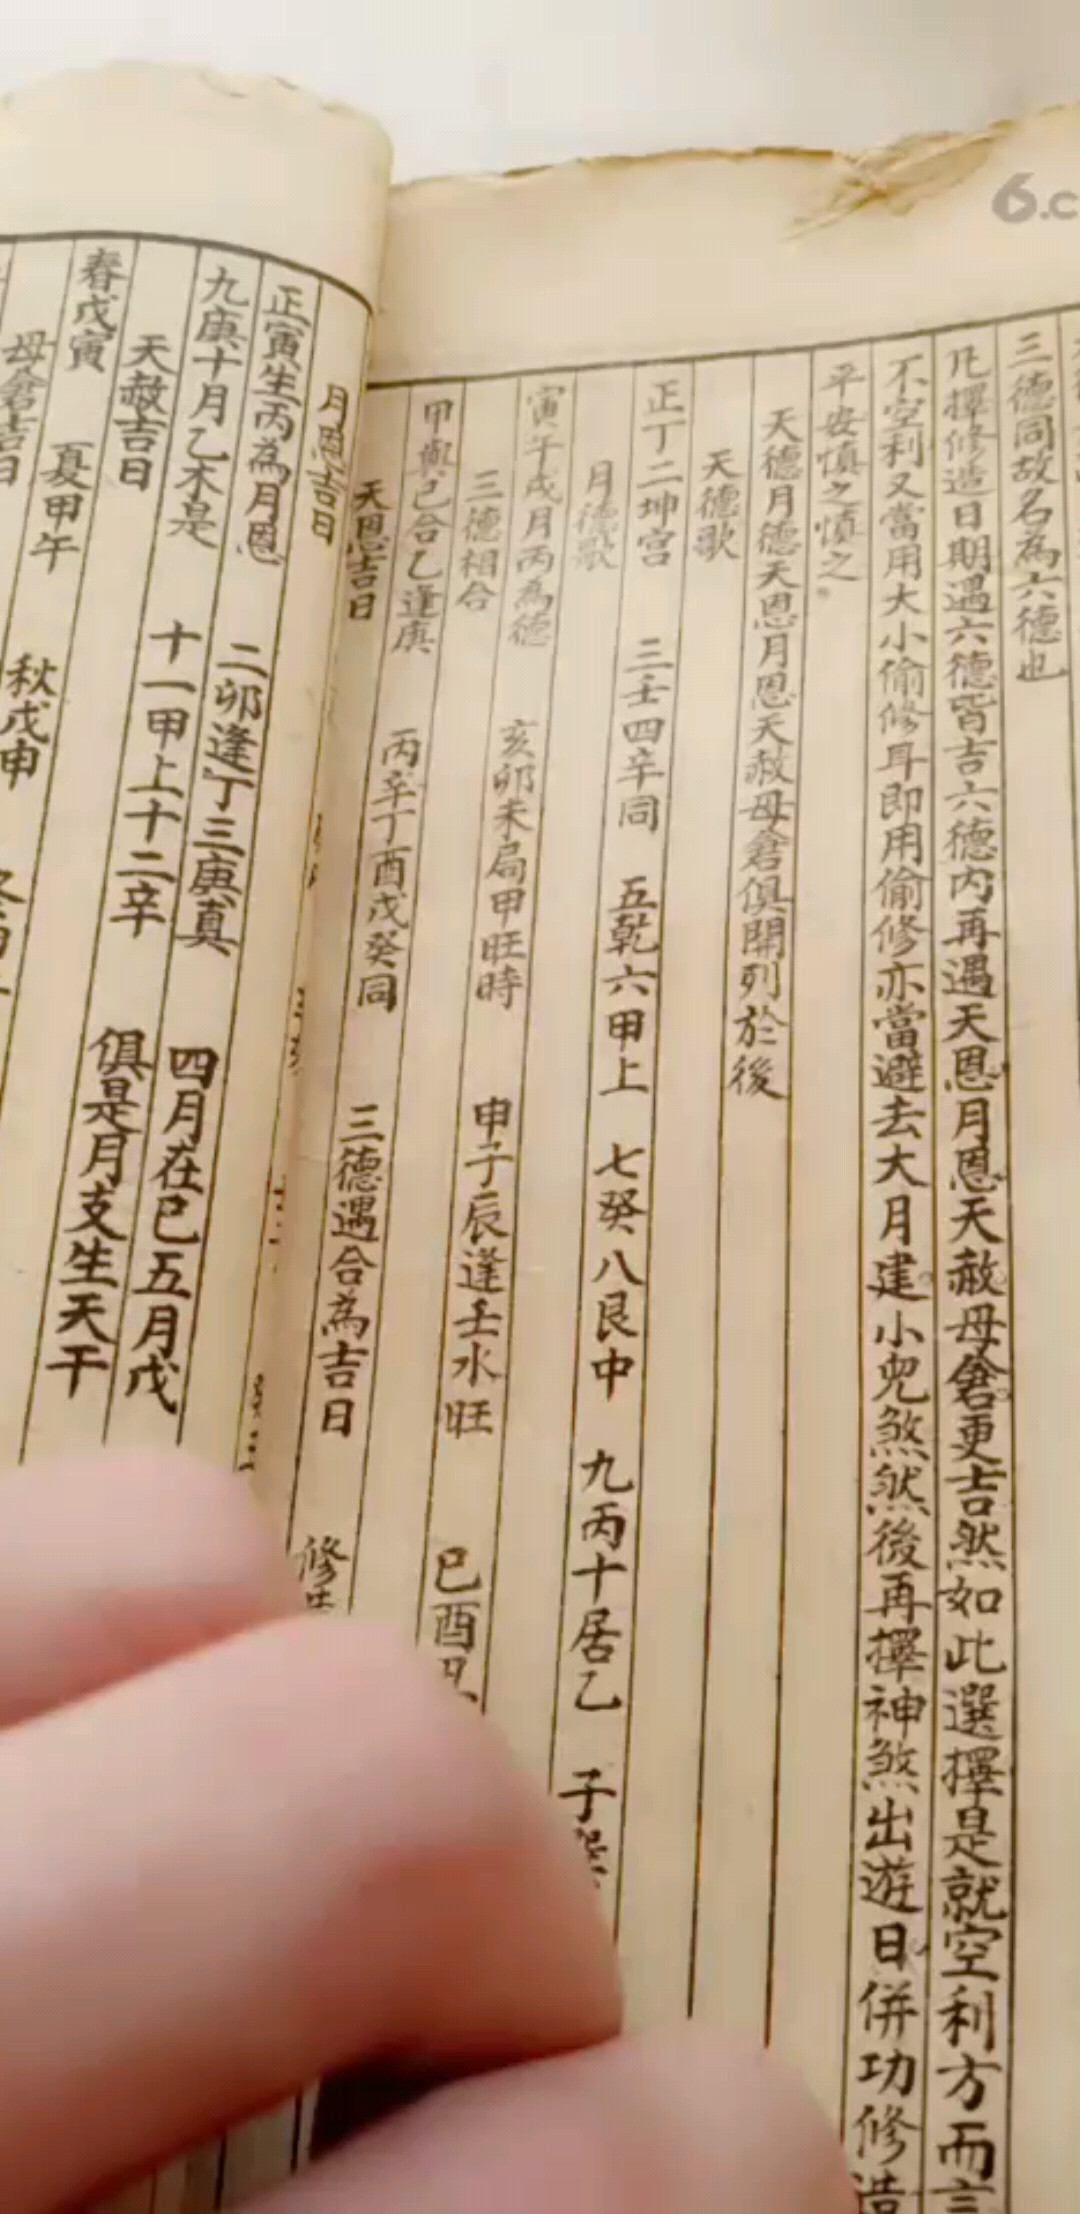 三德同故名為六德也
凡擇修造日期遇六德皆吉六德內再遇天恩月恩天赦母倉更吉然如此選擇是就空利方而言
不空利又當用大小偷修耳即用偷修亦當避去大月建小兒煞然後再擇神煞出遊日併功修造
平安慎之慎之
天德月德天恩月恩天赦母倉俱開列於後
天德歌
正丁二坤宮 三壬四辛同 五乾六甲上 七癸八艮中 九丙十居乙 子
月德歌
寅午戌月丙為德 亥卯未局甲旺時 申子辰逢壬水旺 巳酉丑
三德相合
甲與己合乙逢庚 丙辛丁酉戊癸同 三德遇合為吉日 修
天恩吉日
月恩吉日
正寅生丙為月恩 二卯逢丁三庚真 四月在巳五月戊
九庚十月乙木是 十一甲上十二辛 俱是月支生天干
天赦吉日
春戊寅 夏甲午 秋戊申
母倉吉日
6.c